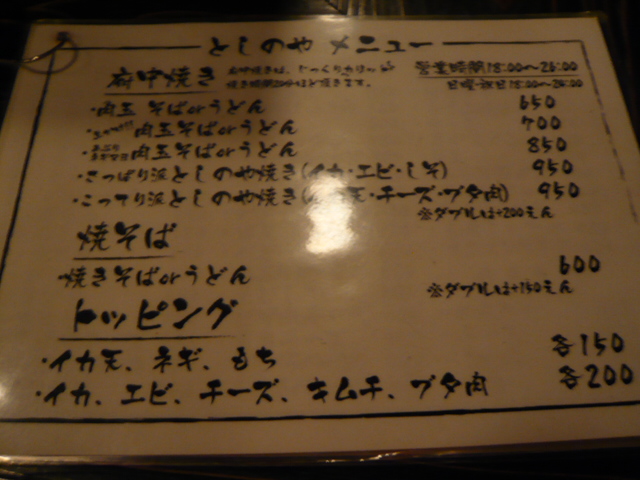 としのや メニュー
府中焼き 府中焼きは、じっくりカリッと 営業時間18:00〜26:00
焼き時間20分ほど焼きます。 日曜・祝日18:00〜26:00
・肉玉 そばorうどん 650
肉玉そばorうどん 700
肉玉そばorうどん 850
・さっぱり派としのや焼き(イカ・エビ・しそ) 950
・こってり派としのや焼き(イカ天・チーズ・ブタ肉) 950
※ダブルは+200えん
焼そば
・焼きそばorうどん 600
※ダブルは+150えん
トッピング
・イカ天、ネギ、もち 各150
・イカ、エビ、チーズ、キムチ、ブタ肉 各200